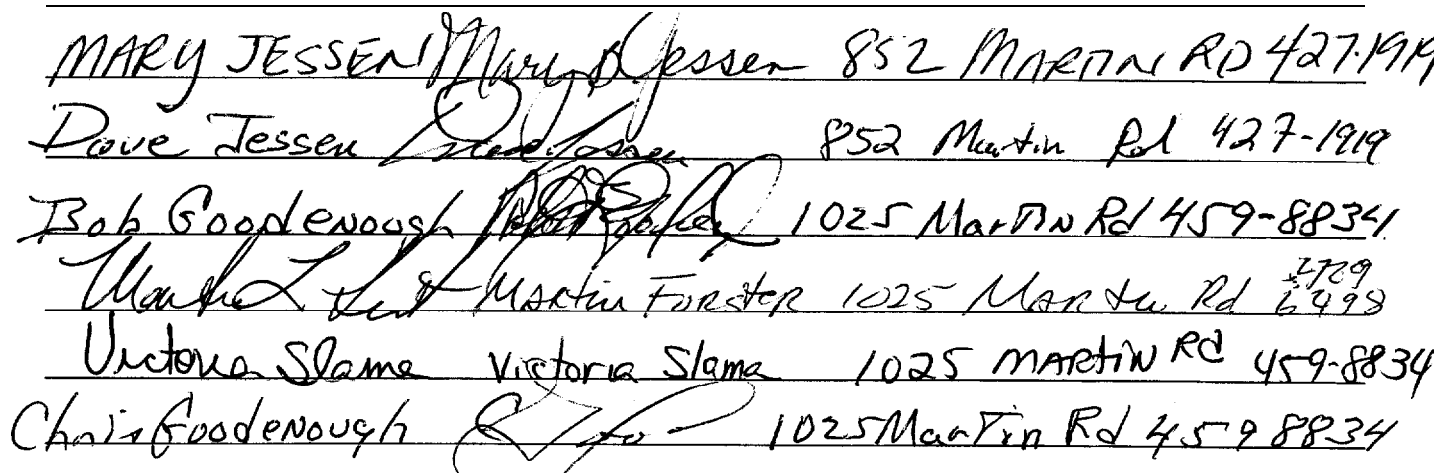 MARY JESSEN Mary B Jessen 852 MARTIN RD 427-1919
Dave Jessen Dave Jessen 852 Martin Rd 427-1919
Bob Goodenough 1025 Martin Rd 459-8834
Martin Forster 1025 Martin Rd 2729 6498
Victoria Slama Victoria Slama 1025 MARTIN Rd 459-8834
Chris Goodenough 1025 Martin Rd 459 8834